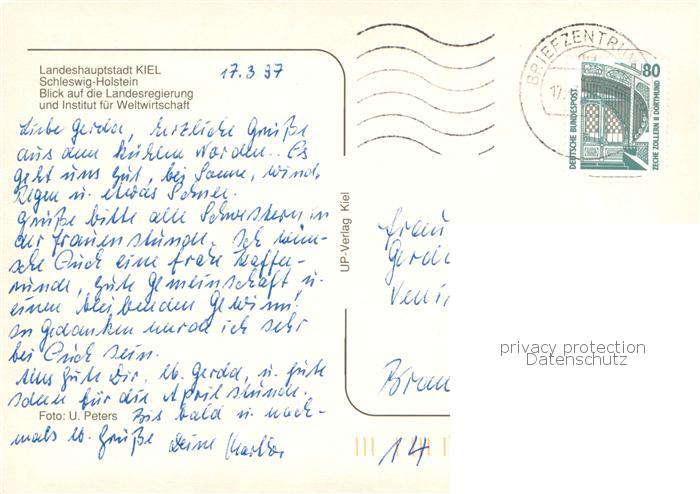 Landeshauptstadt KIEL
Schleswig-Holstein
Blick auf die Landesregierung
und Institut für Weltwirtschaft
17.3.97
Liebe Gerda, herzliche Grüße
aus dem kühlen Norden. Es
geht uns gut, bei Sonne, Wind,
Regen u. etwas Schnee.
Grüße bitte alle Schwestern in
der Frauenstunde. Ich wün-
sche Euch eine frohe Kaffee-
runde, gute Gemeinschaft u.
einen bleibenden Gewinn!
In Gedanken werde ich sehr
bei Euch sein.
Alles Gute Dir, lb. Gerda, u. gute
für die Aprilstunde.
Foto: U. Peters
Bis bald u. noch-
mals lb. Grüße Deine
UP-Verlag Kiel
BRIEFZENTRUM
17.
80
DEUTSCHE BUNDESPOST
ZECHE ZOLLERN II DORTMUND
Frau
Gerda
Bran
14
privacy protection
Datenschutz